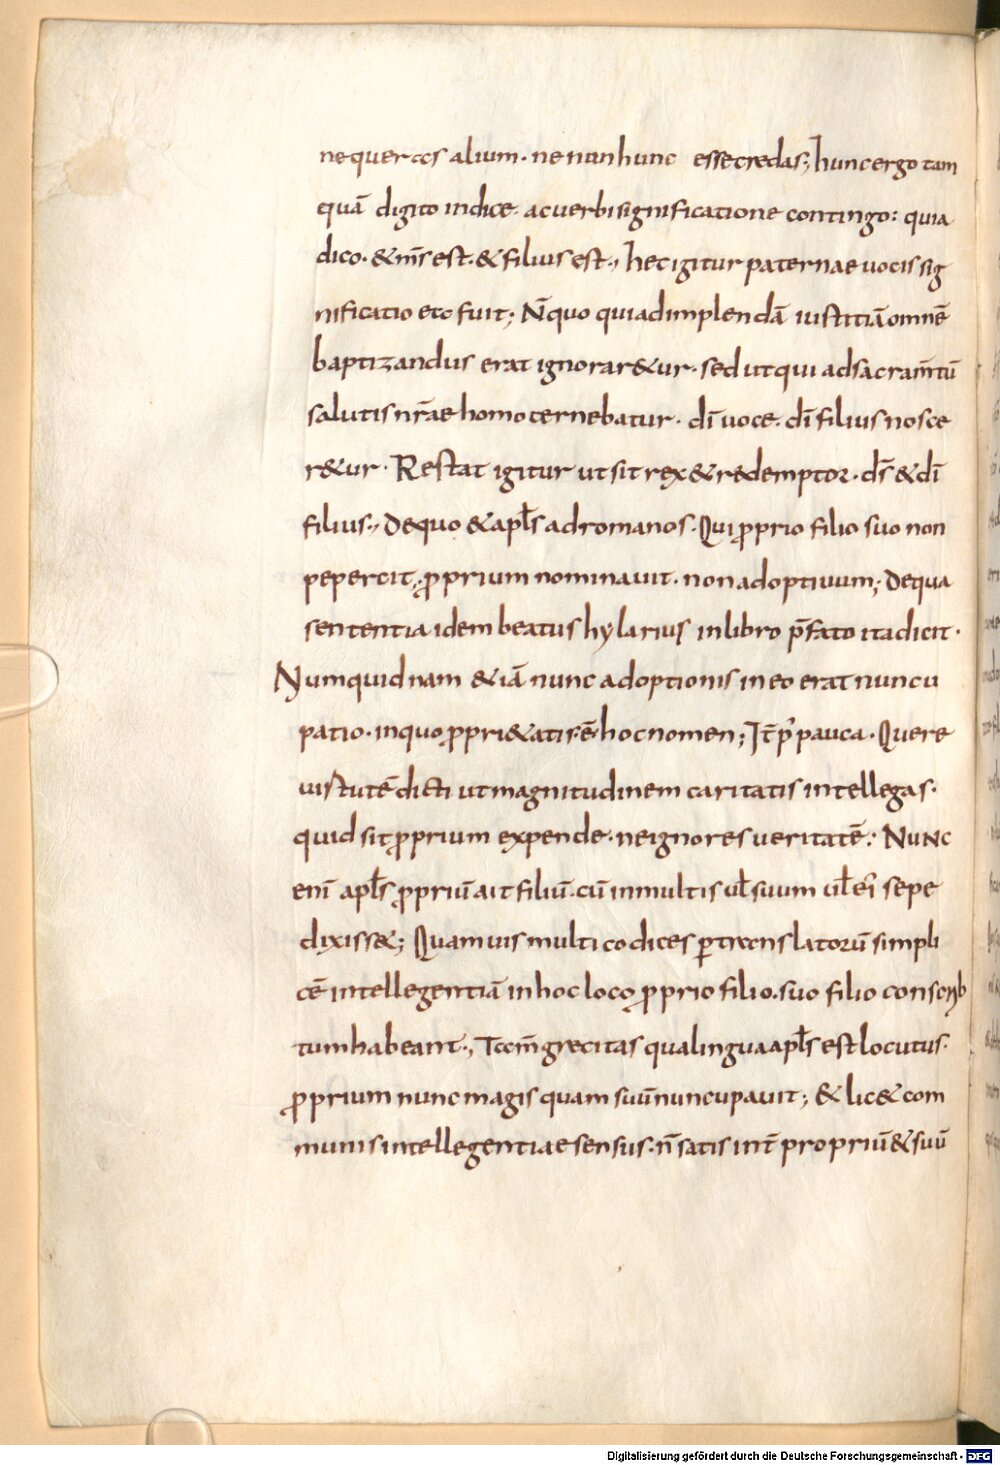 nequeras alium· nenonhunc essecredas·, huncergo tam
quā digito indice· acuerbisignificatione contingo: quia
dico· &m̄s est·&filius est·, hecigitur paternae uocis sig
nificatio eto fuit; N̄quo quiadimplendā iustitiā omnē
baptizandus erat ignorar&ur· sed utqui adsacram̄tū
salutis nr̄ae homo cernebatur· dī uoce· dī filius nosce
r&ur· Restat igitur ut sit rex&redemptor· ds̄ &dī
filius·, dequo &apƚs adromanos· Qui ꝓprio filio suo non
pepercit, ꝓprium nominauit· non adoptiuum; dequa
sententia idem beatus hylarius inlibro p̄fato itadicit·
Numquidnam &iā nunc adoptionis in eo erat nuncu
patio· inquo ꝓpri&atisē hocnomen; It̄ p᷒ pauca· Quere
uistutē dicti ut magnitudinem caritatis intellegas·
quid sit ꝓprium expende· neignores ueritatē: Nunc
enī apƚs ꝓpriū ait filiū· cū inmultis uƚ suum uƚ ei᷒ sepe
dixiss&; Quamuis multi codices ꝑtranslatorū simpli
cē intellegentiā inhoc loco ꝓprio filio· suo filio conscrib
tum habeant·, Tam̄ grecitas qualingua apƚs est locutus·
ꝓprium nunc magis quam suū nuncupauit; & lic& com
munis intellegentiae sensus· n̄ satis int̄ propriū & suū
Digitalisierung gefördert durch die Deutsche Forschungsgemeinschaft - DFG